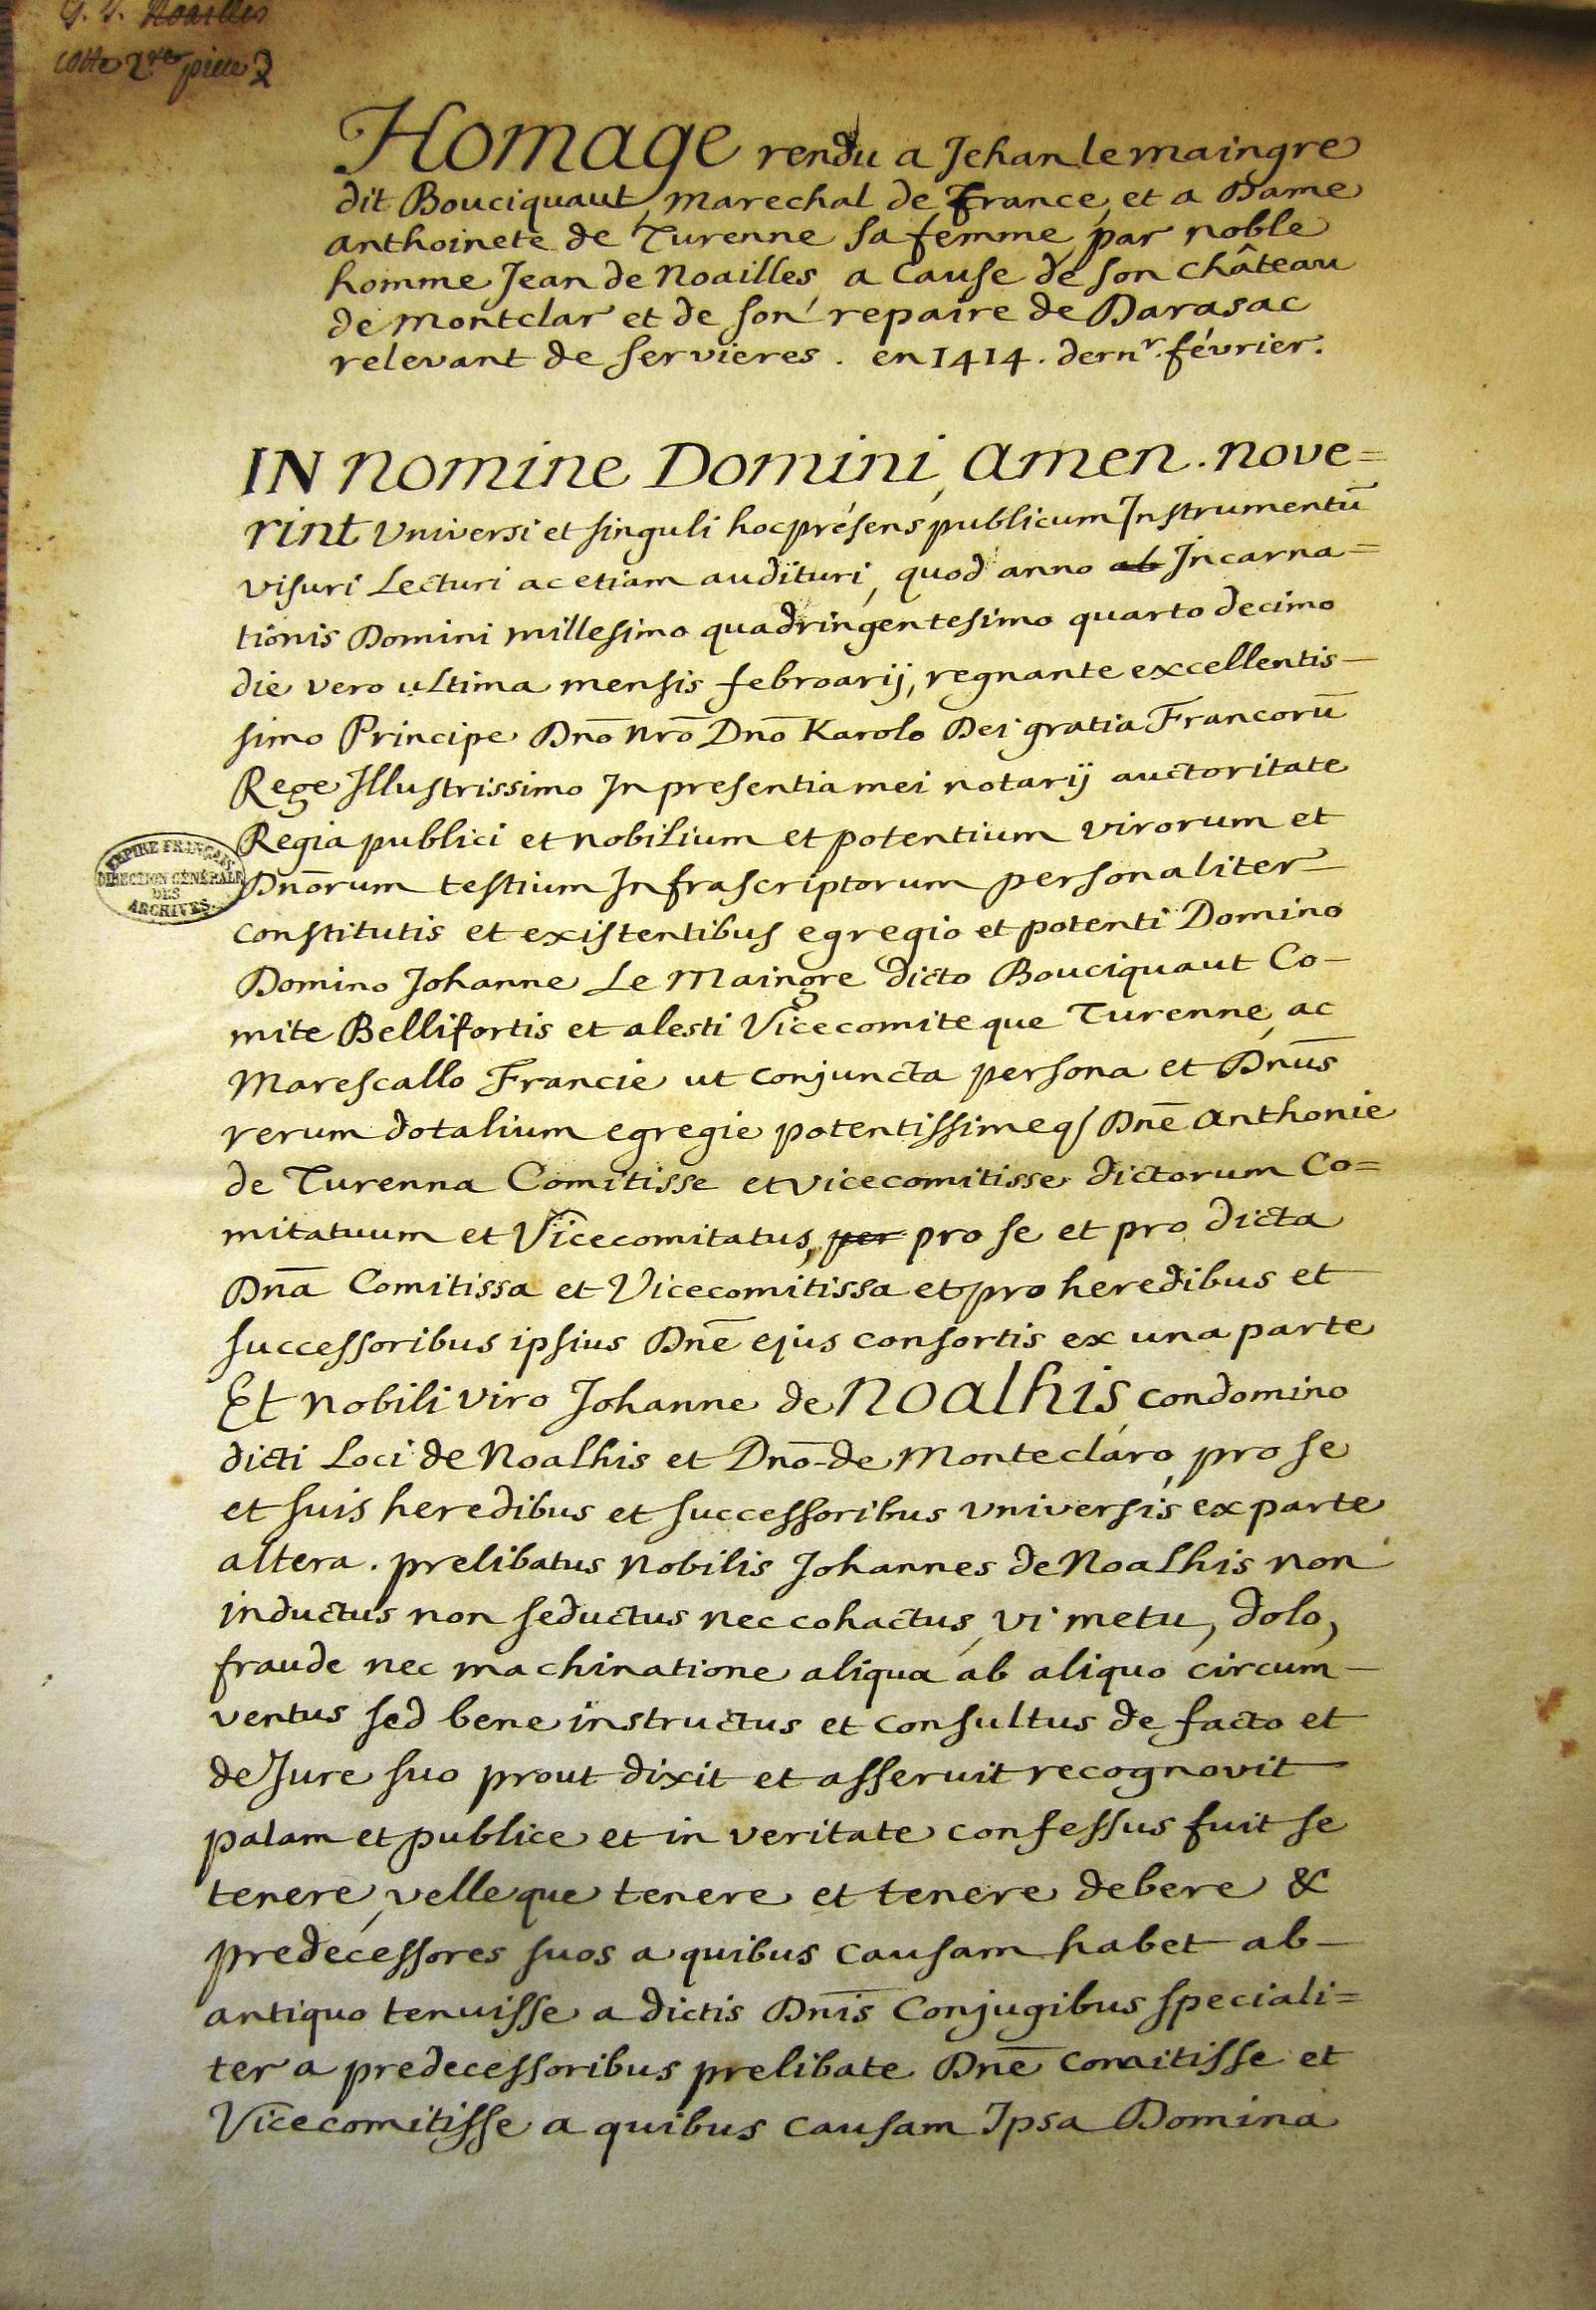 G. V. Noailles
cotte 2.me piece 2
Homage rendu a Jehan le maingre
dit Bouciquaut, marechal de france, et a Dame
anthoinete de Turenne sa femme, par noble
homme Jean de Noailles, a cause de son château
de montclar et de son repaire de Darasac
relevant de servieres. en 1414. dern.r février.
IN nomine Domini, amen. nove=
rint universi et singuli hoc présens publicum Instrumentū
visuri Lecturi ac etiam audituri, quod anno ab Incarna=
tionis Domini millesimo quadringentesimo quarto decimo
die vero ultima mensis febroarij, regnante excellentis-
simo Principe Dnō nrō Dnō Karolo Dei gratia Francorū
Rege Illustrissimo In presentia mei notarij auctoritate
Regia publici et nobilium et potentium virorum et
Dnōrum testium Infrascriptorum personaliter-
constitutis et existentibus egregio et potenti Domino
Domino Johanne Le Maingre dicto Bouciquaut Co-
mite Bellifortis et alesti Vicecomite que Turenne, ac
Marescallo Francie ut conjuncta persona et Dnūs
rerum dotalium egregie potentissimeq Dnē anthonie
de Turenna Comitisse et vicecomitisse dictorum Co=
mitatuum et Vicecomitatus, per pro se et pro dicta
Dnā Comitissa et Vicecomitissa et pro heredibus et
successoribus ipsius Dnē ejus consortis ex una parte
Et nobili viro Johanne de Noalhis condomino
dicti Loci de Noalhis et Dnō-de Monteclaro, pro se
et suis heredibus et successoribus universis, ex parte
altera. prelibatus nobilis Johannes de Noalhis non
inductus non seductus nec cohactus, vi metu, dolo,
fraude nec machinatione aliqua ab aliquo circum-
ventus sed bene instructus et consultus de facto et
de Jure suo prout dixit et asseruit recognovit
palam et publice et in veritate confessus fuit se
tenere, velle que tenere et tenere debere &
predecessores suos a quibus causam habet ab-
antiquo tenuisse a dictis Dnīs Conjugibus speciali=
ter a predecessoribus prelibate Dnē comitisse et
Vicecomitisse a quibus causam Ipsa Domina
EMPIRE FRANÇAIS
DIRECTION GÉNÉRALE
DES
ARCHIVES